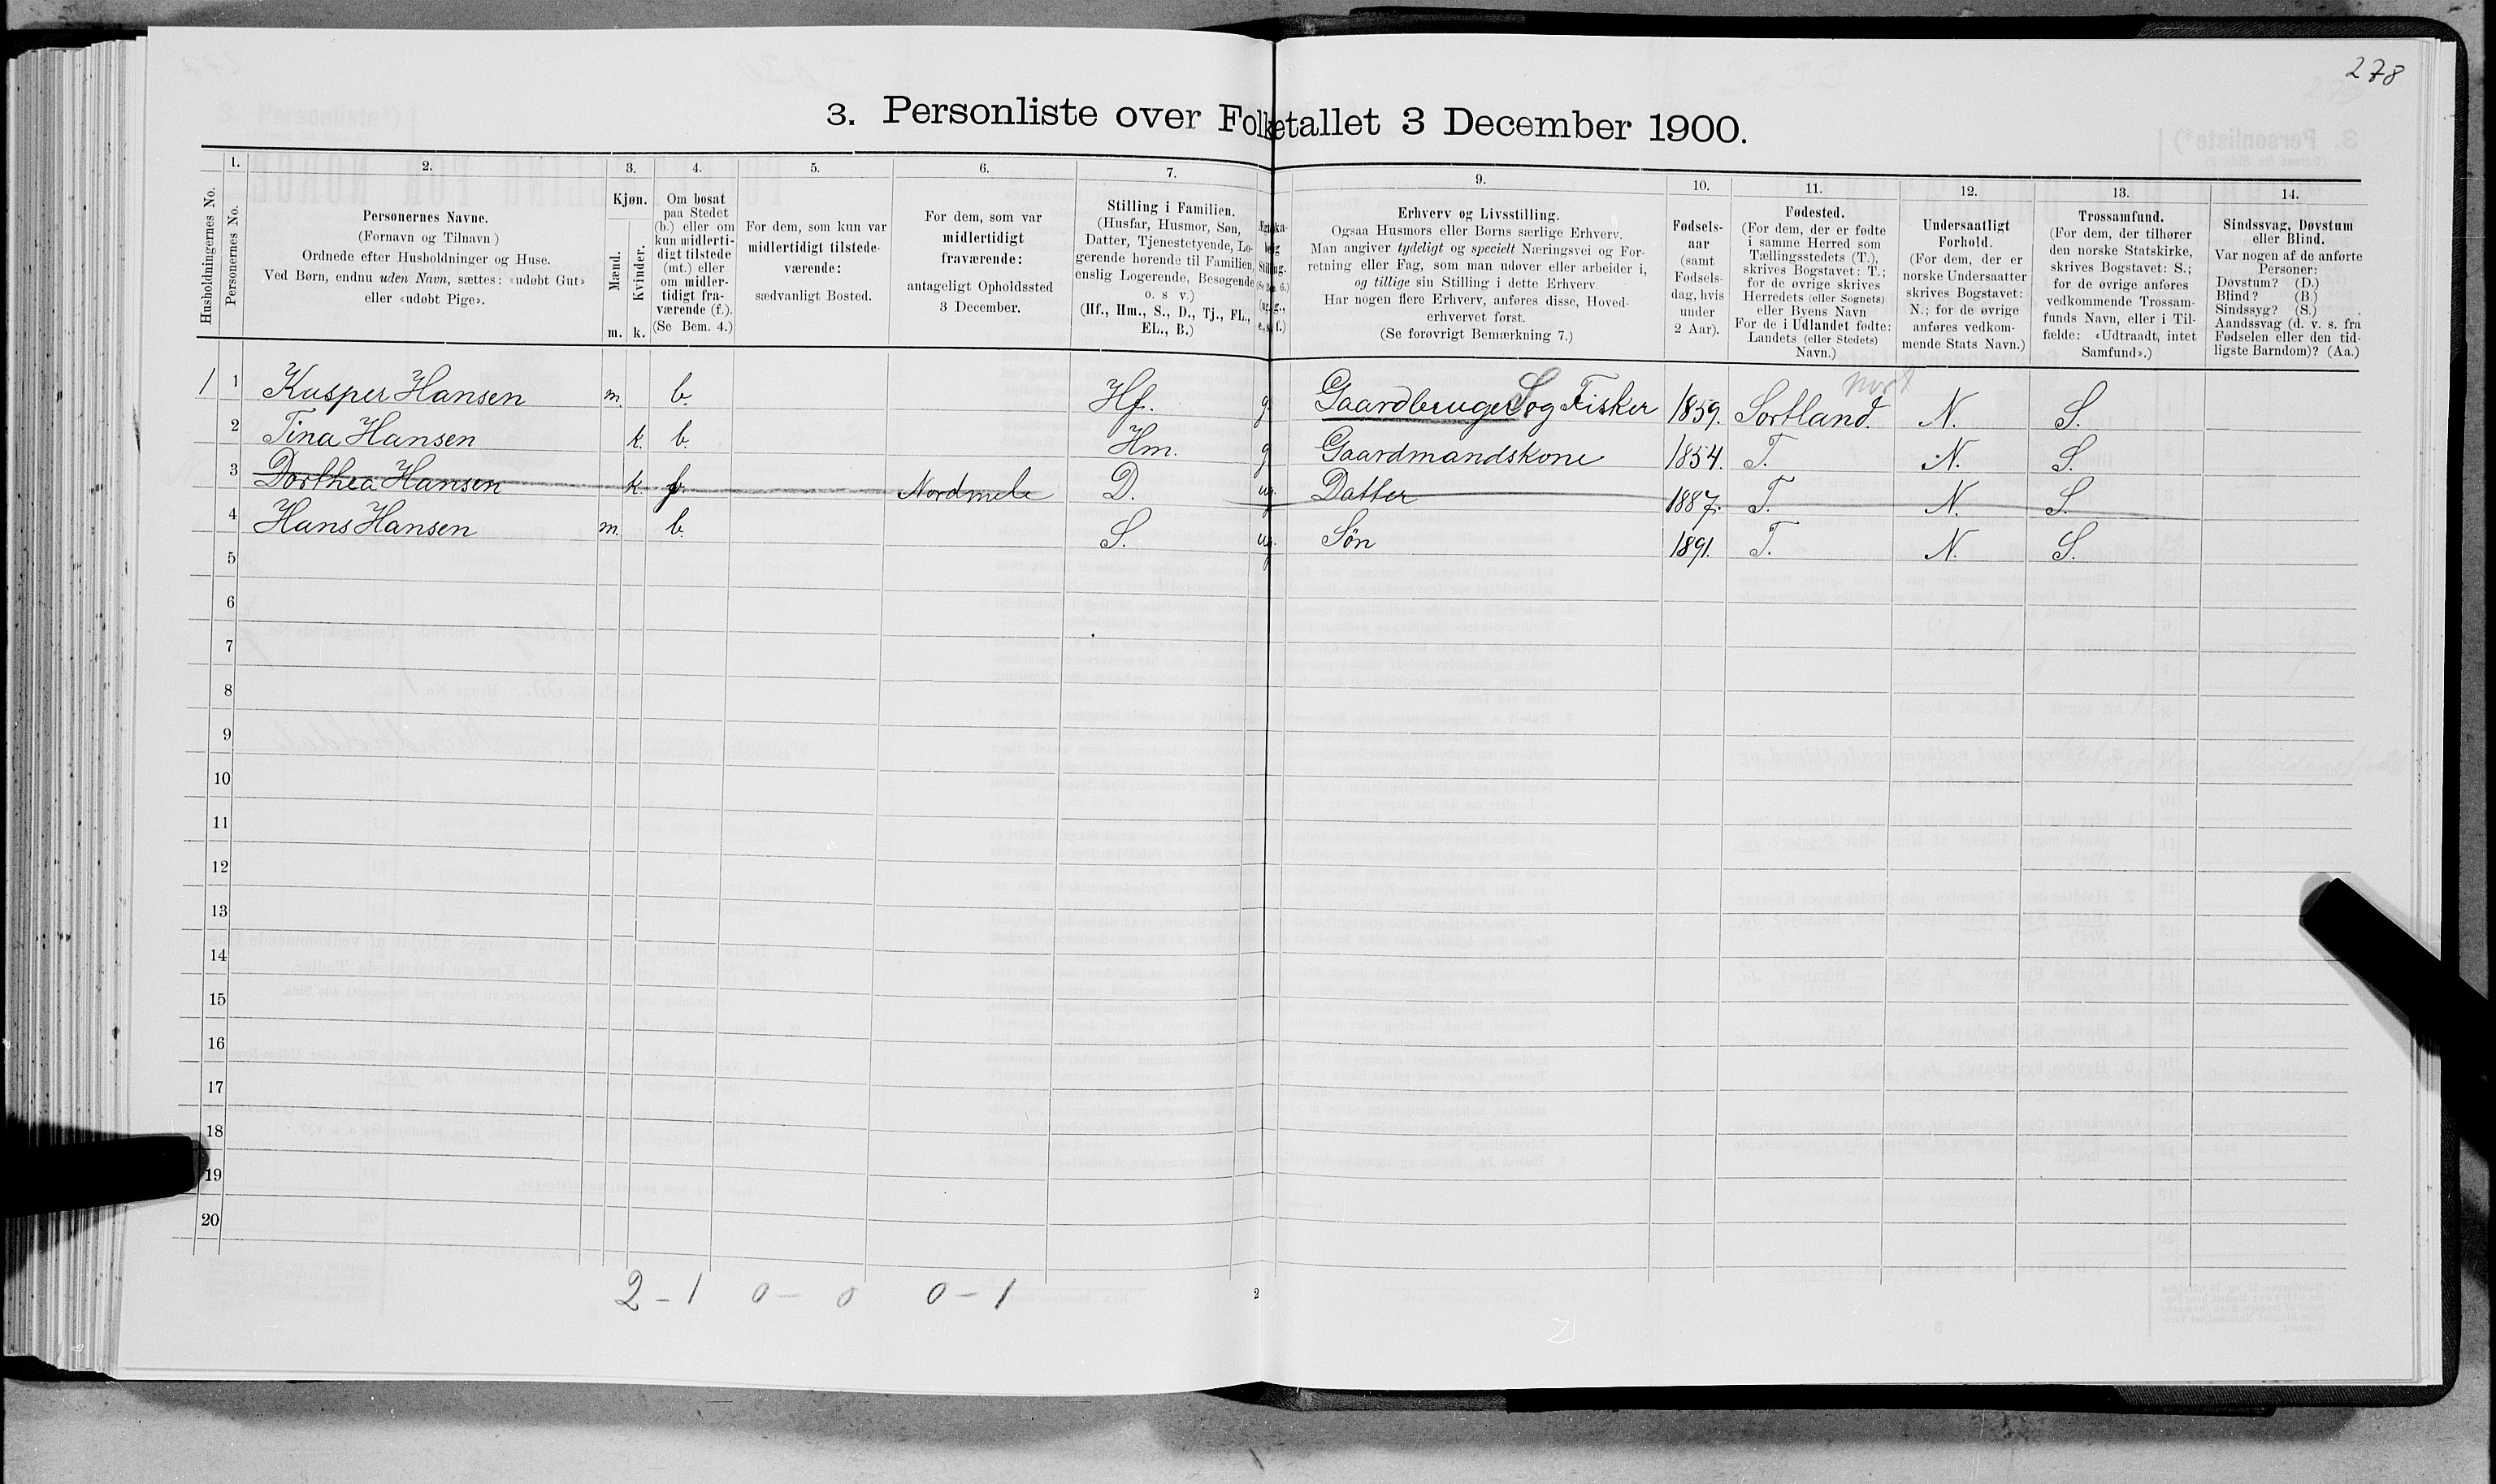 278
3. Personliste over Folketallet 3 December 1900.
Husholdningernes No.
1.
Personernes No.
2.
Personernes Navne.
(Fornavn og Tilnavn)
Ordnede efter Husholdninger og Huse.
Ved Børn, endnu uden Navn, sættes: «udøbt Gut»
eller «udøbt Pige».
3.
Kjøn.
Mænd.
Kvinder.
m.
k.
4.
Om bosat
paa Stedet
(b.) eller om
kun midlerti-
digt tilstede
(mt.) eller
om midler-
tidigt fra-
værende (f.).
(Se Bem. 4.)
5.
For dem, som kun var
midlertidigt tilstede-
værende:
sædvanligt Bosted.
6.
For dem, som var
midlertidigt
fraværende:
antageligt Opholdssted
3 December.
7.
Stilling i Familien.
(Husfar, Husmor, Søn,
Datter, Tjenestetyende, Lo-
gerende hørende til Familien,
enslig Logerende, Besøgende
o. s v.)
(Hf., Hm., S., D., Tj., FL.,
EL., B.)
9.
Erhverv og Livsstilling.
Ogsaa Husmors eller Børns særlige Erhverv.
Man angiver tydeligt og specielt Næringsvei og For-
retning eller Fag, som man udøver eller arbeider i,
og tillige sin Stilling i dette Erhverv.
Har nogen flere Erhverv, anføres disse, Hoved-
erhvervet først.
(Se forøvrigt Bemærkning 7.)
10.
Fødsels-
aar
(samt
Fødsels-
dag, hvis
under
2 Aar).
11.
Fødested.
(For dem, der er fødte
i samme Herred som
Tællingsstedets (T.),
skrives Bogstavet: T.;
for de øvrige skrives
Herredets (eller Sognets)
eller Byens Navn
For de i Udlandet fødte:
Landets (eller Stedets)
Navn.)
12.
Undersaatligt
Forhold.
(For dem, der er
norske Undersaatter
skrives Bogstavet:
N.; for de øvrige
anføres vedkom-
mende Stats Navn.)
13.
Trossamfund.
(For dem, der tilhører
den norske Statskirke,
skrives Bogstavet: S.;
for de øvrige anføres
vedkommende Trossam-
funds Navn, eller i Til-
fælde: «Udtraadt, intet
Samfund».)
14.
Sindssvag, Døvstum
eller Blind.
Var nogen af de anførte
Personer:
Døvstum? (D.)
Blind? (B.)
Sindssyg? (S.)
Aandssvag (d. v. s. fra
Fødselen eller den tid-
ligste Barndom)? (Aa.)
Nord
1 1 Kasper Hansen m. b. Hf. g. Gaardbruger S og Fisker 1859. Sortland. N. S.
2 Tina Hansen k. b. Hm. g. Gaardmandskone 1854. T. N. S.
3 Dorthea Hansen k. f. Nordmele D. ug. Datter 1887. T. N. S.
4 Hans Hansen m. b. S. ug. Søn 1891. T. N. S.
5
6
7
8
9
10
11
12
13
14
15
16
17
18
19
20
2 - 1 0 - 0 0 - 1
2